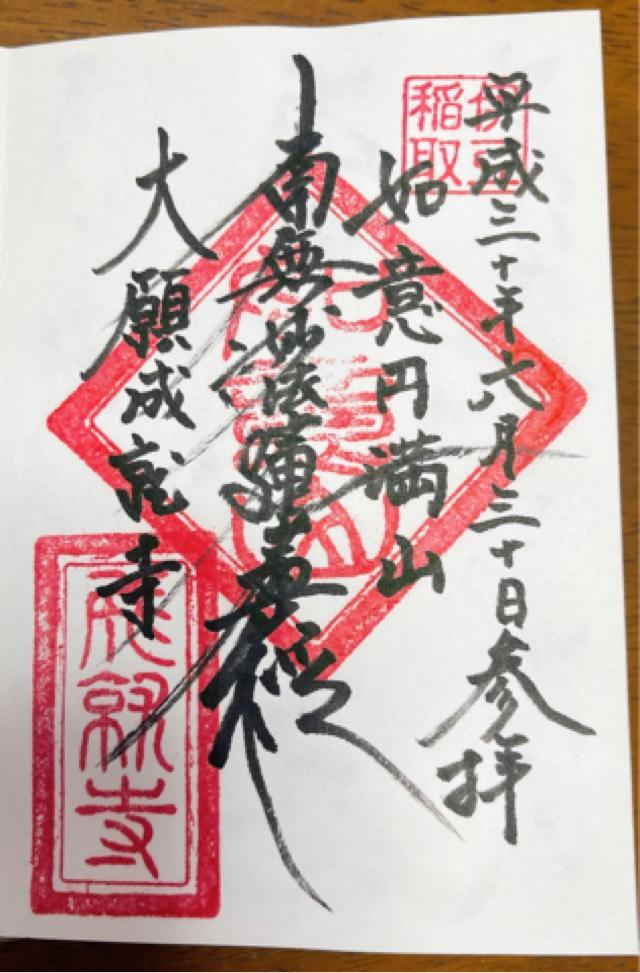 伊豆
稲取
平成三十年六月三十日参拝
如意円満山
南無妙法蓮華経
大願成就寺
成就寺